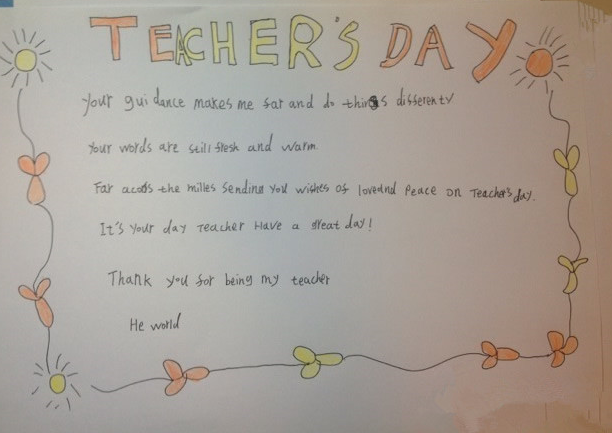 TEACHER'S DAY
Your guidance makes me far and do things differenty
Your words are still flesh and warm.
Far acods the milles sending you wishes of loveand Peace on Teacher's day.
It's your day Teacher Have a great day!
Thank you for being my teacher
He world